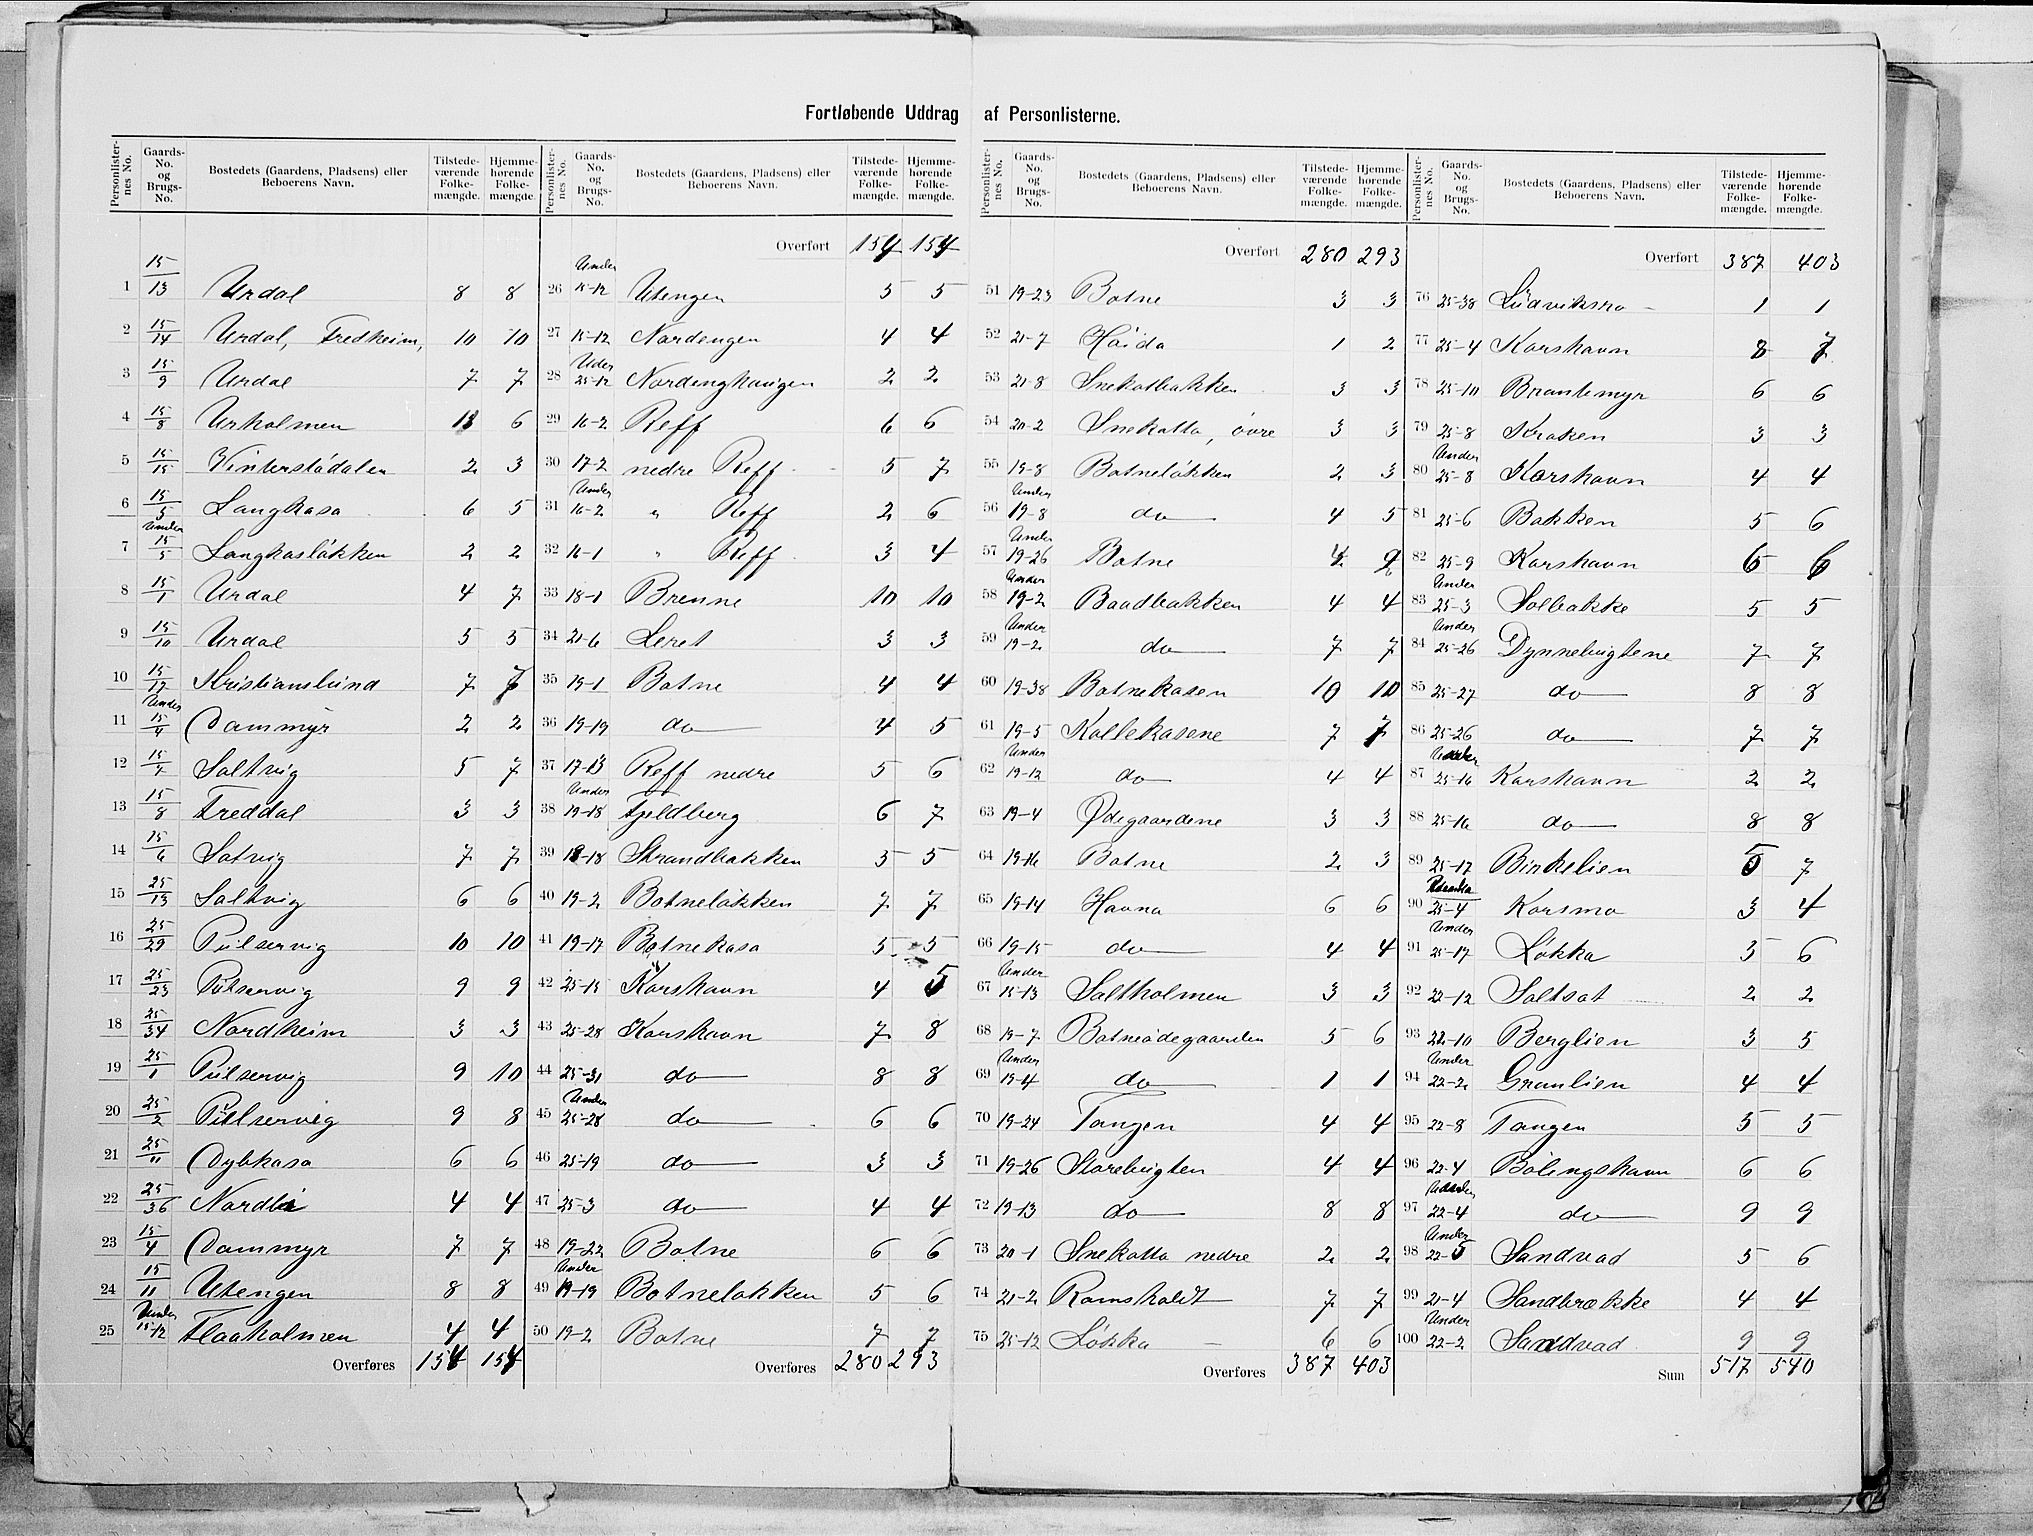 Fortløbende Uddrag af Personlisterne.
Personlisternes No. Gaards-No. og Brugs-No. Bostedets (Gaardens, Pladsens) eller Beboerens Navn. Tilstedeværende Folkemængde. Hjemmehørende Folkemængde.
1 15/13 Urdal 8 8
2 15/14 Urdal, Fredheim, 10 10
3 15/9 Urdal 7 7
4 15/8 Urholmen 13 6
5 15/15 Vinterstødalen 2 3
6 15/5 Langkasa 6 5
7 Under 15/5 Langkasløkken 2 2
8 15/1 Urdal 4 7
9 15/10 Urdal 5 5
10 15/17 Kristianslund 7 7
11 Under 15/4 Dammyr 2 2
12 15/7 Saltvig 5 7
13 15/8 Freddal 3 3
14 15/6 Satvig 7 7
15 25/13 Saltvig 6 6
16 25/29 Pulservig 10 10
17 25/23 Pulservig 9 9
18 25/34 Nordheim 3 3
19 25/1 Pulservig 9 10
20 25/2 Pulservig 9 8
21 25/11 Dybkasa 6 6
22 25/36 Nordli 4 4
23 15/4 Dammyr 7 7
24 15/11 Utengen 8 8
25 Under 15/12 Flaaholmen 4 4
Overføres 154 154
Personlisternes No. Gaards-No. og Brugs-No. Bostedets (Gaardens, Pladsens) eller Beboerens Navn. Tilstedeværende Folkemængde. Hjemmehørende Folkemængde.
Overført 154 154
26 Under 15-12 Utengen 5 5
27 15-12 Nordengen 4 4
28 Uder 25-12 Nordenghaugen 2 2
29 16-2 Reff 6 6
30 17-2 nedre Reff 5 7
31 Under 16-2 " Reff 2 6
32 16-1 " Reff 3 4
33 18-1 Brenne 10 10
34 21-6 Leret 3 3
35 19-1 Botne 4 4
36 19-19 do 4 5
37 17-13 Reff nedre 5 6
38 Under 19-18 Fjeldberg 6 7
39 19-18 Strandbakken 5 5
40 19-2 Botneløkken 7 7
41 19-17 Botnekasa 5 5
42 25-15 Korshavn 4 5
43 25-28 Korshavn 7 8
44 25-31 do 8 8
45 Under 25-28 do 6 6
46 25-19 do 3 3
47 25-3 do 4 4
48 19-22 Botne 6 6
49 Under 19-19 Botneløkken 5 6
50 19-2 Botne 7 7
Overføres 280 293
Personlisternes No. Gaards-No. og Brugs-No. Bostedets (Gaardens, Pladsens) eller Beboerens Navn. Tilstedeværende Folkemængde. Hjemmehørende Folkemængde.
Overført 280 293
51 19-23 Botne 3 3
52 21-7 Høida 1 2
53 21-8 Snekalbakken 3 3
54 20-2 Snekatta, øvre 3 3
55 19-8 Botneløkken 2 3
56 Under 19-8 do 4 5
57 Under 19-26 Botne 4
58 Under 19-2 Baadbakken 4 4
59 Under 19-2 do 7 7
60 19-38 Botnekasen 10 10
61 19-5 Kollekasene 7 7
62 Under 19-12 do 4 4
63 19-4 Ødegaardene 3 3
64 19-16 Botne 2 3
65 19-14 Havna 6 6
66 19-15 do 4 4
67 Under 15-13 Saltholmen 3 3
68 19-7 Botneødegaarden 5 6
69 Under 19-4 do 1 1
70 19-24 Tangen 4 4
71 19-26 Storebugten 4 4
72 19-13 do 8 8
73 20-1 Snekatta nedre 2 2
74 21-2 Ramsholdt 7 7
75 25-12 Løkka 6 6
Overføres 387 403
Personlisternes No. Gaards-No. og Brugs-No. Bostedets (Gaardens, Pladsens) eller Beboerens Navn. Tilstedeværende Folkemængde. Hjemmehørende Folkemængde.
Overført 387 403
76 25-38 Ludviksro 1 1
77 25-4 Korshavn 8 7
78 25-10 Brantemyr 6 6
79 25-8 Kroken 3 3
80 Under 25-8 Korshavn 4 4
81 25-6 Bakken 5 6
82 25-9 Korshavn 6 6
83 Under 25-3 Solbakke 5 5
84 Under 25-26 Dynnebugtene 7 7
85 25-27 do 8 8
86 25-26 do 7 7
87 Under 25-16 Korshavn 2 2
88 25-16 do 8 8
89 25-17 Birkelien 5 7
90 25-4 Korsmo 3 4
91 Under 25-17 Løkka 5 6
92 22-12 Saltsat 2 2
93 22-10 Berglien 3 5
94 Under 22-2 Granlien 4 4
95 22-8 Tangen 5 5
96 22-4 Bølingshavn 6 6
97 Under 22-4 do 9 9
98 Under 22-5 Sandvad 5 6
99 21-4 Sandbrække 4 4
100 Under 22-2 Sandvad 9 9
Sum 517 540